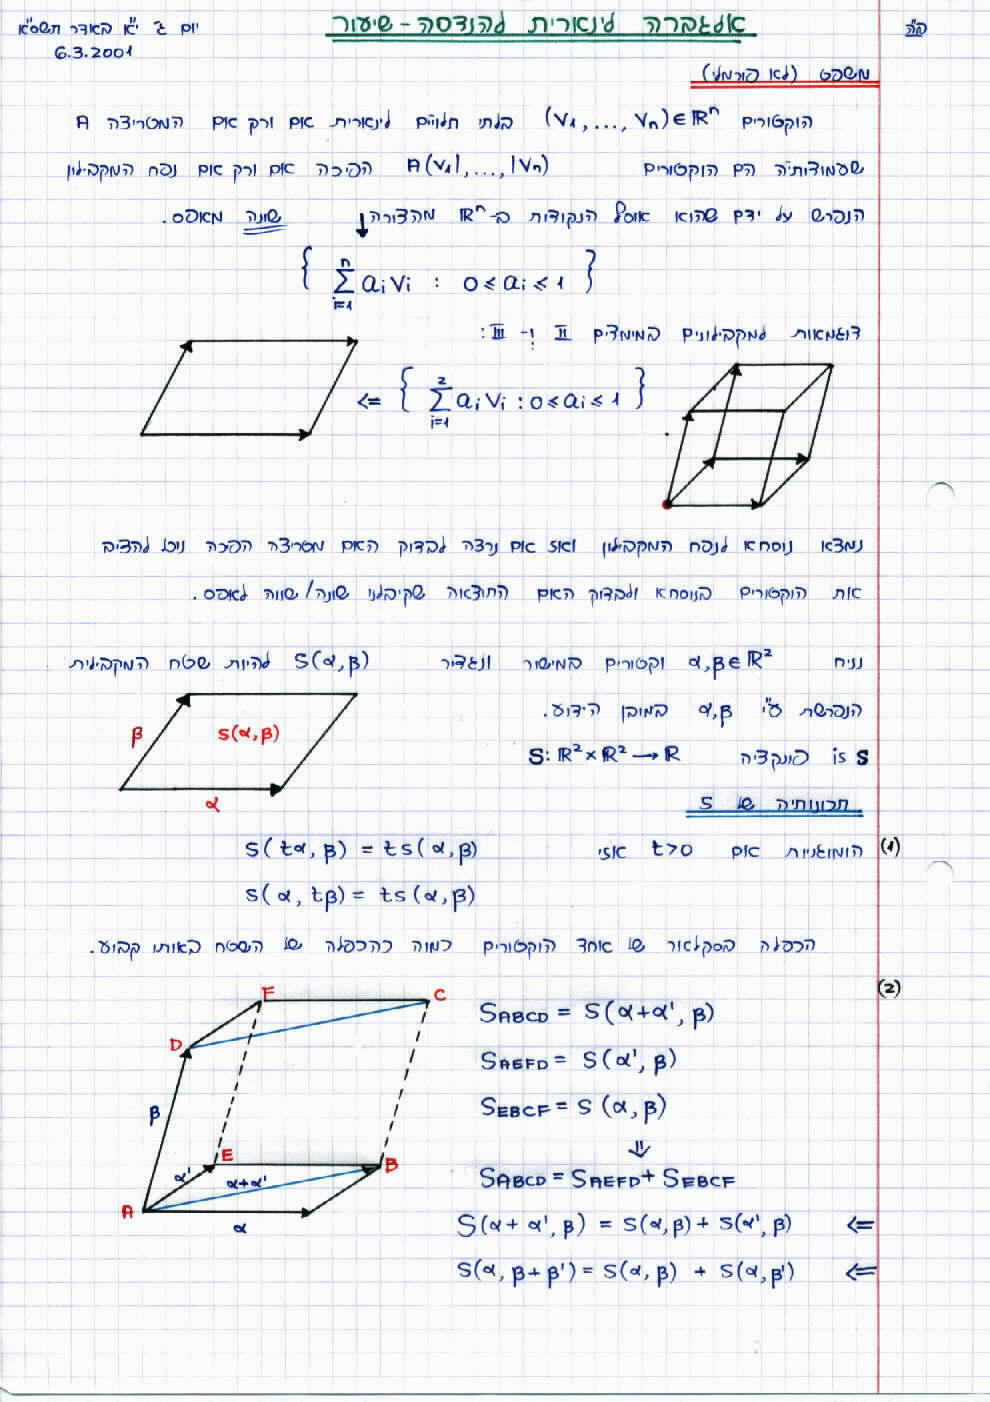 ב"ה
אלגברה לינארית להנדסה - שיעור
יום ג' י"א באדר תשס"א
6.3.2001
משפט (לא פורמלי)
הוקטורים (v1,...,vn)∈ℝⁿ בלתי תלויים לינארית אם ורק אם המטריצה A
שעמודותיה הם הוקטורים A(v1|,...,|vn) הפיכה אם ורק אם נפח המקבילון
הנפרש על ידם שהוא אוסף הנקודות ב-ℝⁿ מהצורה ↓ שונה מאפס.
{ n Σ i=1 aᵢvᵢ : 0≤aᵢ≤1 }
דוגמאות למקבילונים במימדים II ו- III:
<= { 2 Σ i=1 aᵢvᵢ : 0≤aᵢ≤1 }
נמצא נוסחא לנפח המקבילון ואז אם נרצה לבדוק האם מטריצה הפיכה נוכל להציב
את הוקטורים בנוסחא ולבדוק האם התוצאה שקיבלנו שונה/שווה לאפס.
נניח α,β∈ℝ² וקטורים במישור ונגדיר S(α,β) להיות שטח המקבילית
הנפרשת ע"י α,β במובן הידוע.
S is פונקציה S: ℝ²×ℝ² → ℝ
β
S(α,β)
α
תכונותיה של S
(1) הומוגניות אם t>0 אזי S(tα,β) = tS(α,β)
S(α,tβ) = tS(α,β)
הכפלה בסקלאר של אחד הוקטורים כמוה כהכפלה של השטח באותו קבוע.
(2)
F
C
D
β
E
B
α'
α+α'
A
α
S_ABCD = S(α+α',β)
S_AEFD = S(α',β)
S_EBCF = S(α,β)
⇓
S_ABCD = S_AEFD + S_EBCF
S(α+α',β) = S(α,β) + S(α',β) <=
S(α,β+β') = S(α,β) + S(α,β') <=